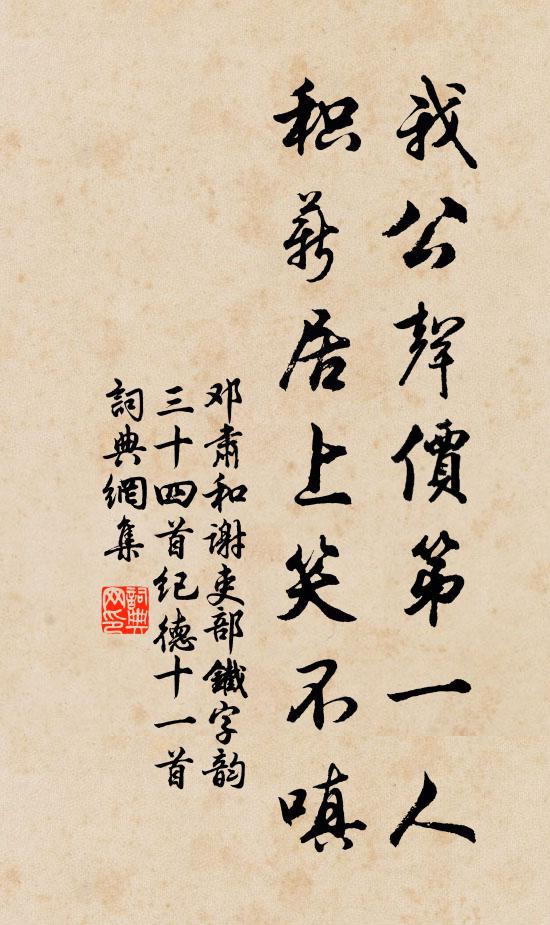 我公聲價第一人
积薪居上笑不嗔
邓肅和谢吏部鐵字韵
三十四首纪德十一首
詞典網集
詞典网印